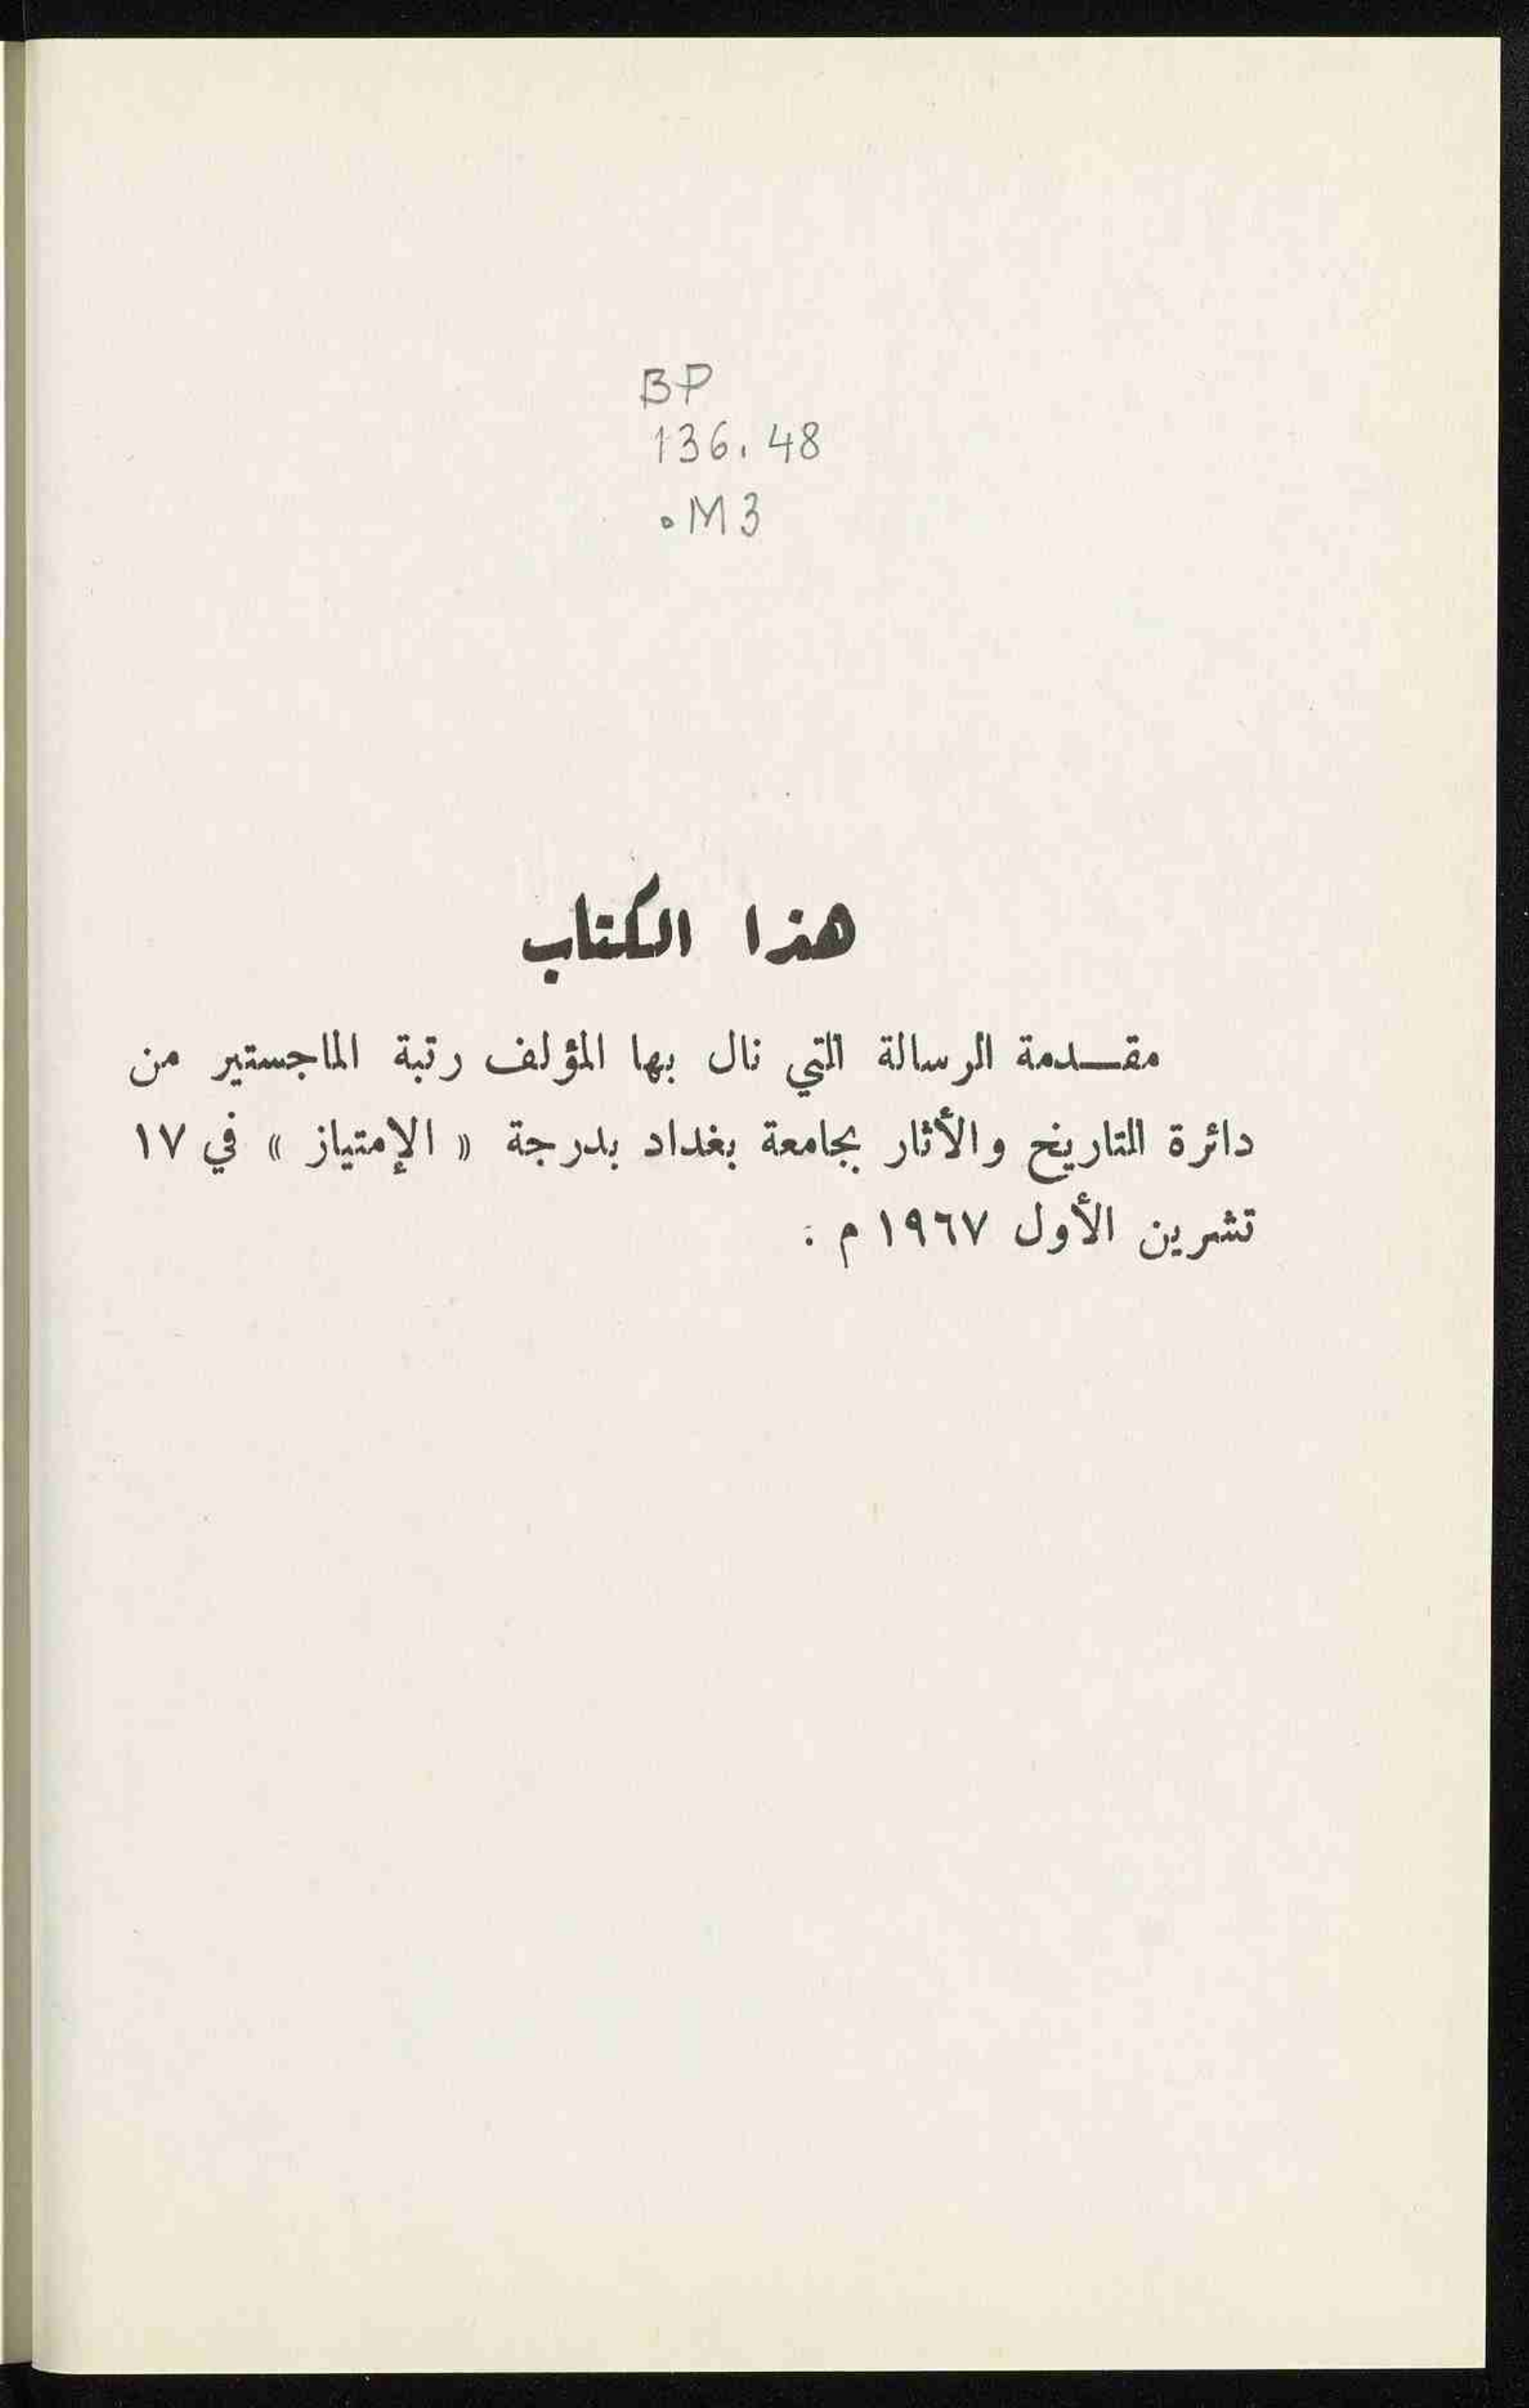 BP
136.48
.M3
هذا الكتاب
مقدمة الرسالة التي نال بها المؤلف رتبة الماجستير من
دائرة التاريخ والأثار بجامعة بغداد بدرجة « الإمتياز » في ١٧
تشرين الأول ١٩٦٧ م :